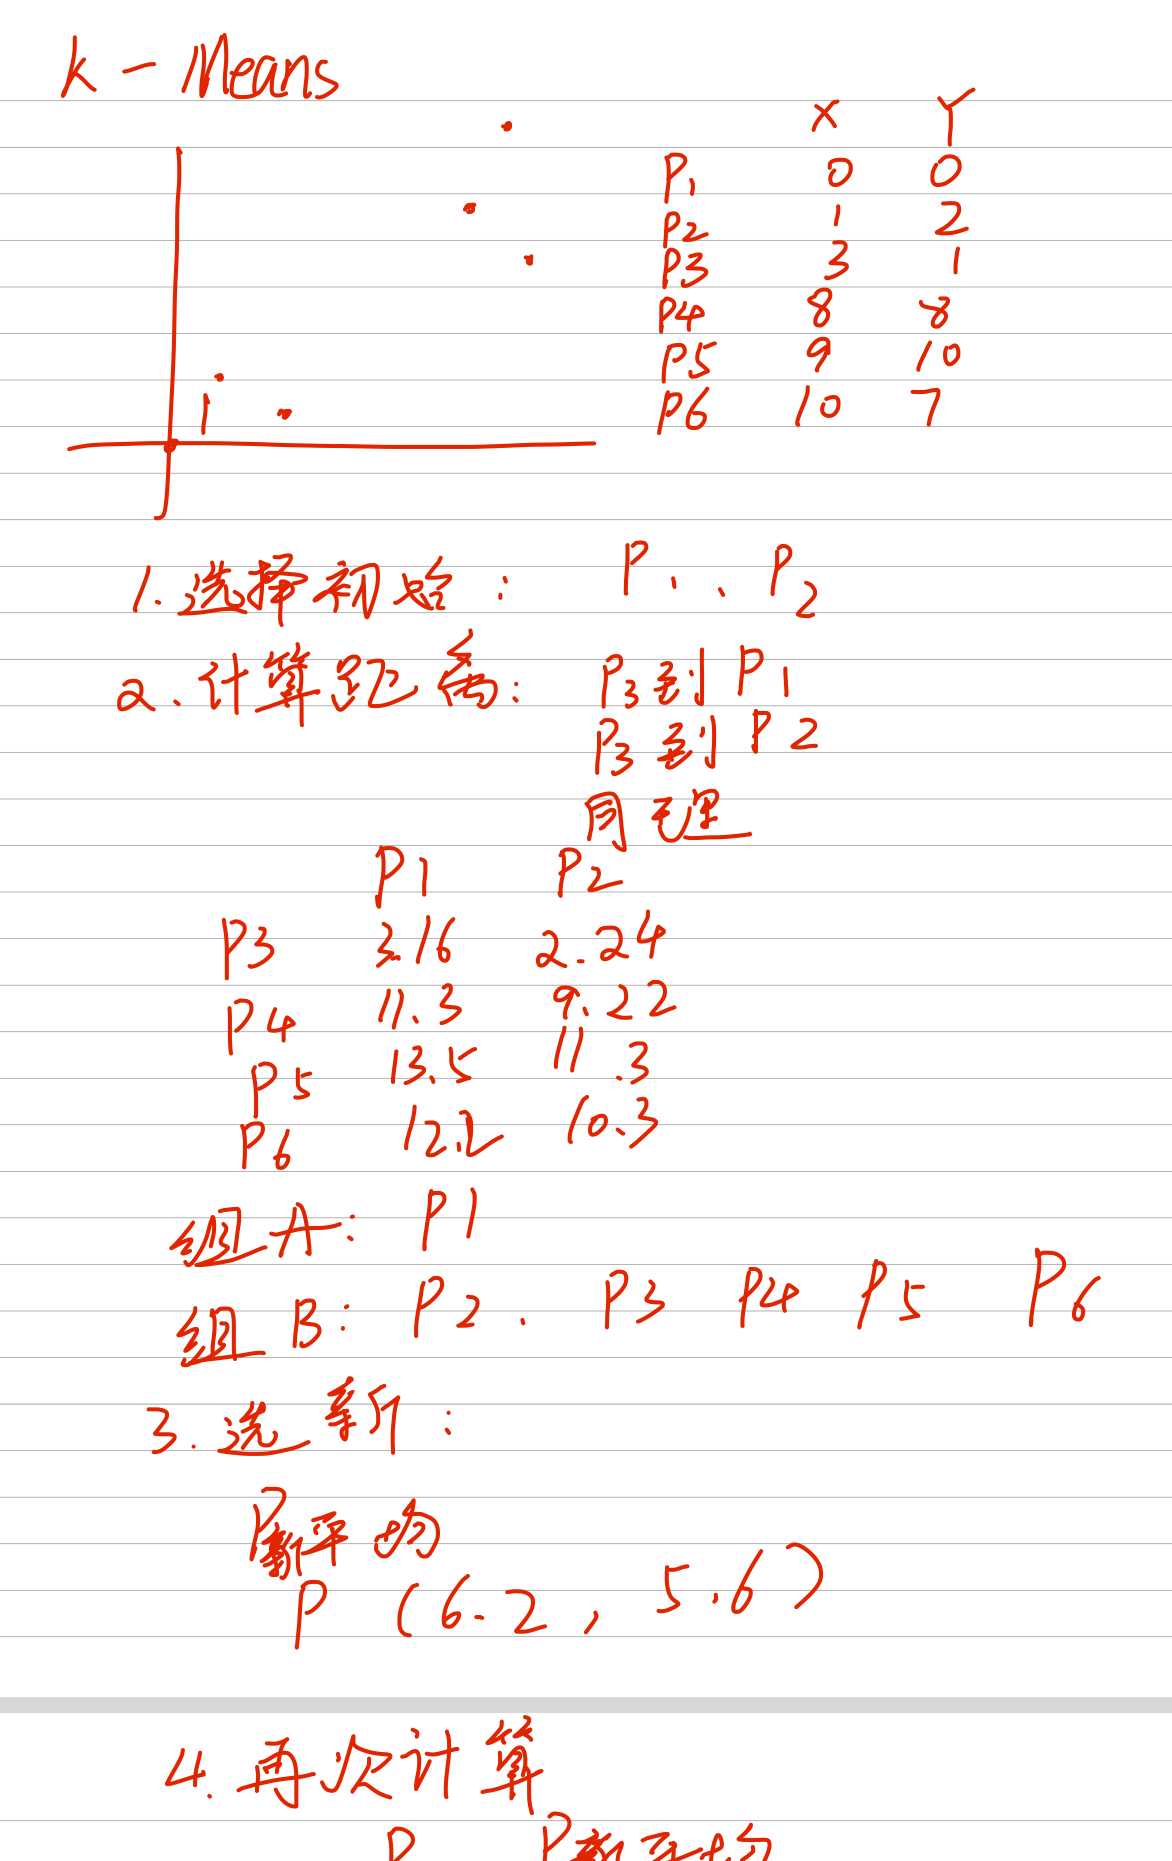 k - Means
X Y
P1 0 0
P2 1 2
P3 3 1
P4 8 8
P5 9 10
P6 10 7
1. 选择初始: P1、P2
2. 计算距离: P3到P1
P3到P2
同理
P1 P2
P3 3.16 2.24
P4 11.3 9.22
P5 13.5 11.3
P6 12.2 10.3
组A: P1
组B: P2、P3 P4 P5 P6
3. 选新:
P新平均
P (6.2, 5.6)
4. 再次计算